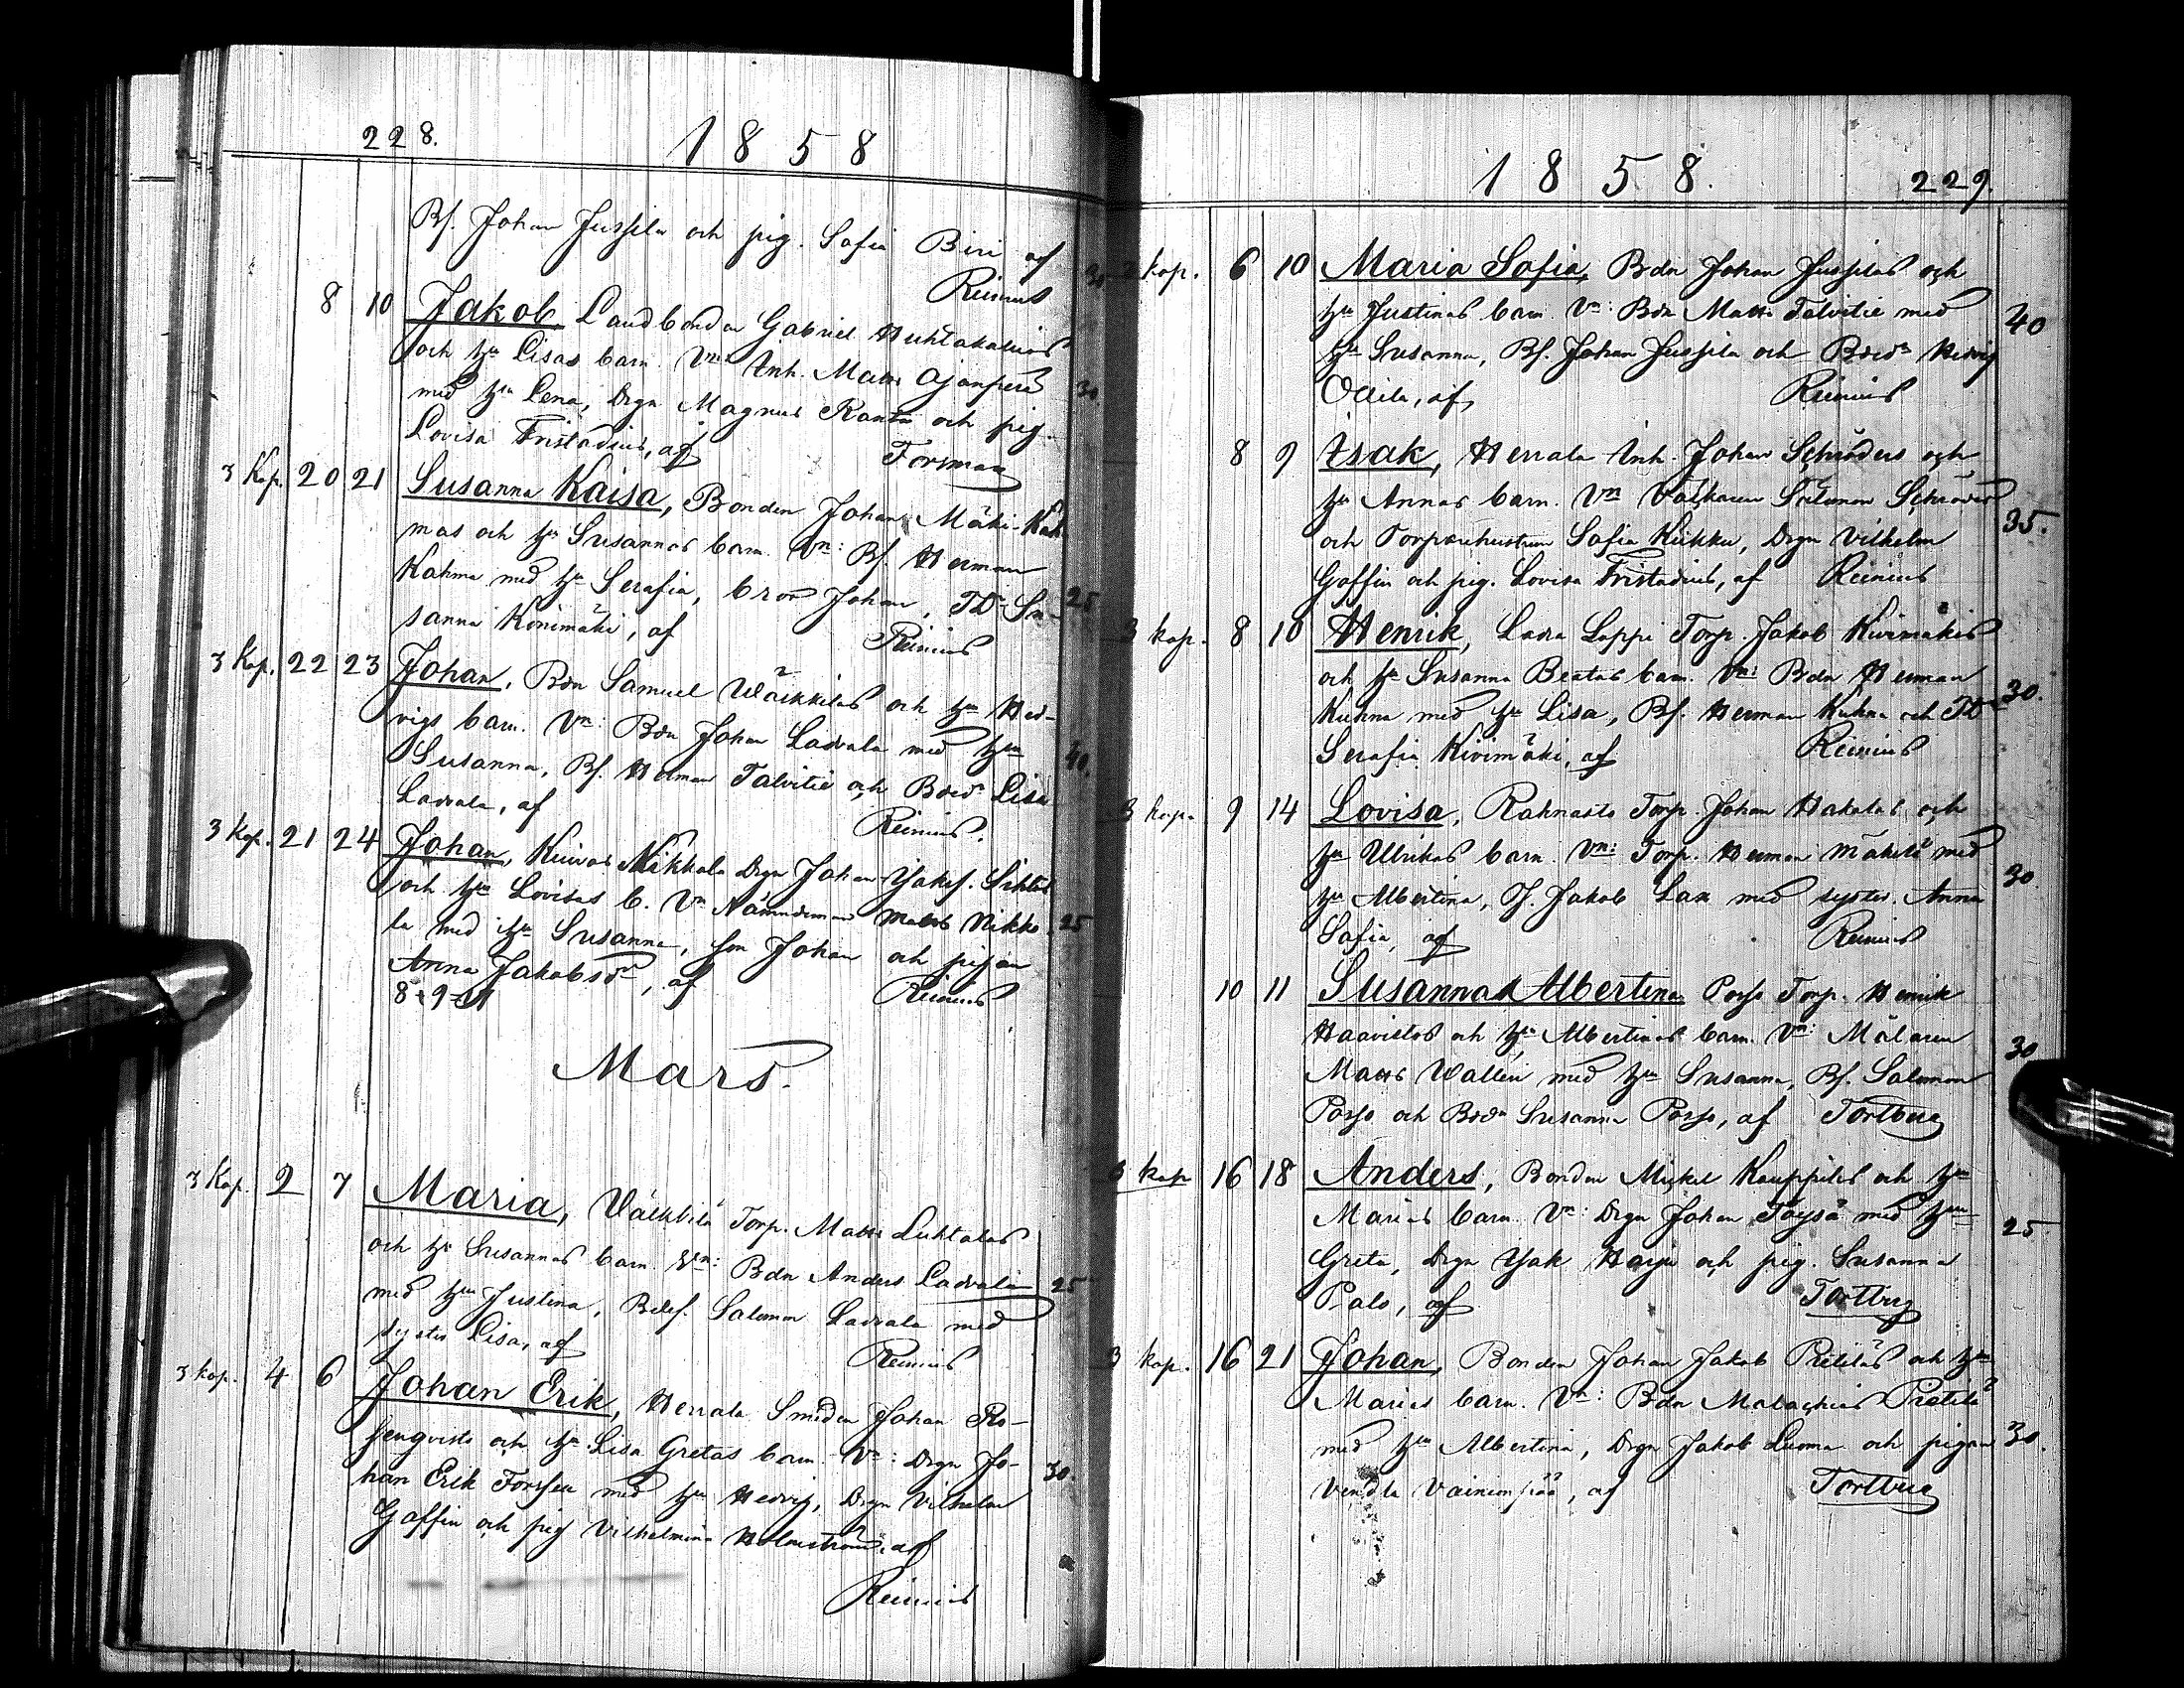 228. 1858
Bs. Johan Jussila och pig. Sofia Biri af
Reinius 30
8 10 Jakob, Landbonden Gabriel Huhtakallios
och hu Lisas barn. Vn: Inh. Matts Ojanperä
med hu Lena, Drgn Magnus Ranta och pig. 30
Lovisa Fristadius, af Forsman
3 Kop. 20 21 Susanna Kaisa, Bonden Johan Mäki-Kah-
mas och hu Susannas barn. Vn: Bs. Herman
Kahma med hu Serafia, bror Johan, TD. Su- 25
sanna Kivimäki, af Reinius
3 Kop. 22 23 Johan, Bdn Samuel Wälkkiläs och hu Hed-
vigs barn. Vn: Bdn Johan Ladvala med hu
Susanna, Bs. Herman Talvitie och Bdr Lisa 40.
Ladvala, af Reinius.
3 Kop. 21 24 Johan, Nikkola Drgn Johan
och hu Lovisas b. Vn Nämndeman Matts Nikko- 25
la med hu Susanna, son Johan och pigan
Anna Jakobsdr, af Reinius
8+9=
Mars.
3 Kop. 2 7 Maria, Välkkilä Torp. Matts Luhtalas
och hu Susannas barn. Vn: Bdn Anders Ladvala 25
med hu Justina, Bdes. Salomon Ladvala med
syster Lisa, af Reinius
3 kop. 4 6 Johan Erik, Herrala Smeden Johan Ro-
senqvists och hu Lisa Gretas barn. Vn: Drgn Jo- 30
han Erik Forssen med hu Hedvig, Drgn Vilhelm
Gaffin och pig Vilhelmina Holmström, af
Reinius
1858. 229.
3 kop. 6 10 Maria Sofia, Bdn Johan Jussilas och
hu Justinas barn. Vn: Bdn Matts Talvitie med 40
hu Susanna, Bs. Johan Jussila och Bdr Hedvig
Ollila, af Reinius
8 9 Isak, Herrala Inh. Johan Schröders och
hu Annas barn. Vn Salomon Schröder 35.
och Torparehustrun Sofia Kiikku, Drgn Vilhelm
Gaffin och pig. Lovisa Fristadius, af Reinius
3 kop. 8 10 Henrik, Lappi Torp. Jakob Kivimäkis
och hu Susanna Beatas barn. Vn: Bdn Herman 30.
Kuhna med hu Lisa, Bs. Herman Kuhna och TD
Serafia Kivimäki, af Reinius
3 kop. 9 14 Lovisa, Rahnasto Torp. Johan Hakalas och
hu Ulrikas barn. Vn: Torp. Herman Mäkelä med 30
hu Albertina, Jakob Lax med syster Anna
Sofia, af Reinius
10 11 Susanna Albertina Porso Torp. Henrik
Haavistos och hu Albertinas barn Vn: Målaren 30
Matts Wallin med hu Susanna, Bs. Salomon
Porso och Bdr Susanna Porso, af Tortberg
3 kop 16 18 Anders, Bonden Mickel Kauppilas och hu
Marias barn. Vn: Drgn Johan Töysä med hu 25
Greta, Drgn Isak Harju och pig. Susanna
Palo, af Tortberg
3 kop. 16 21 Johan, Bonden Johan Jakob Pietiläs och hu
Marias barn. Vn: Bdn Malachias Pietilä
med hu Albertina, Drgn Jakob Luoma och pigan 30.
Vendla Vainionpää, af Tortberg